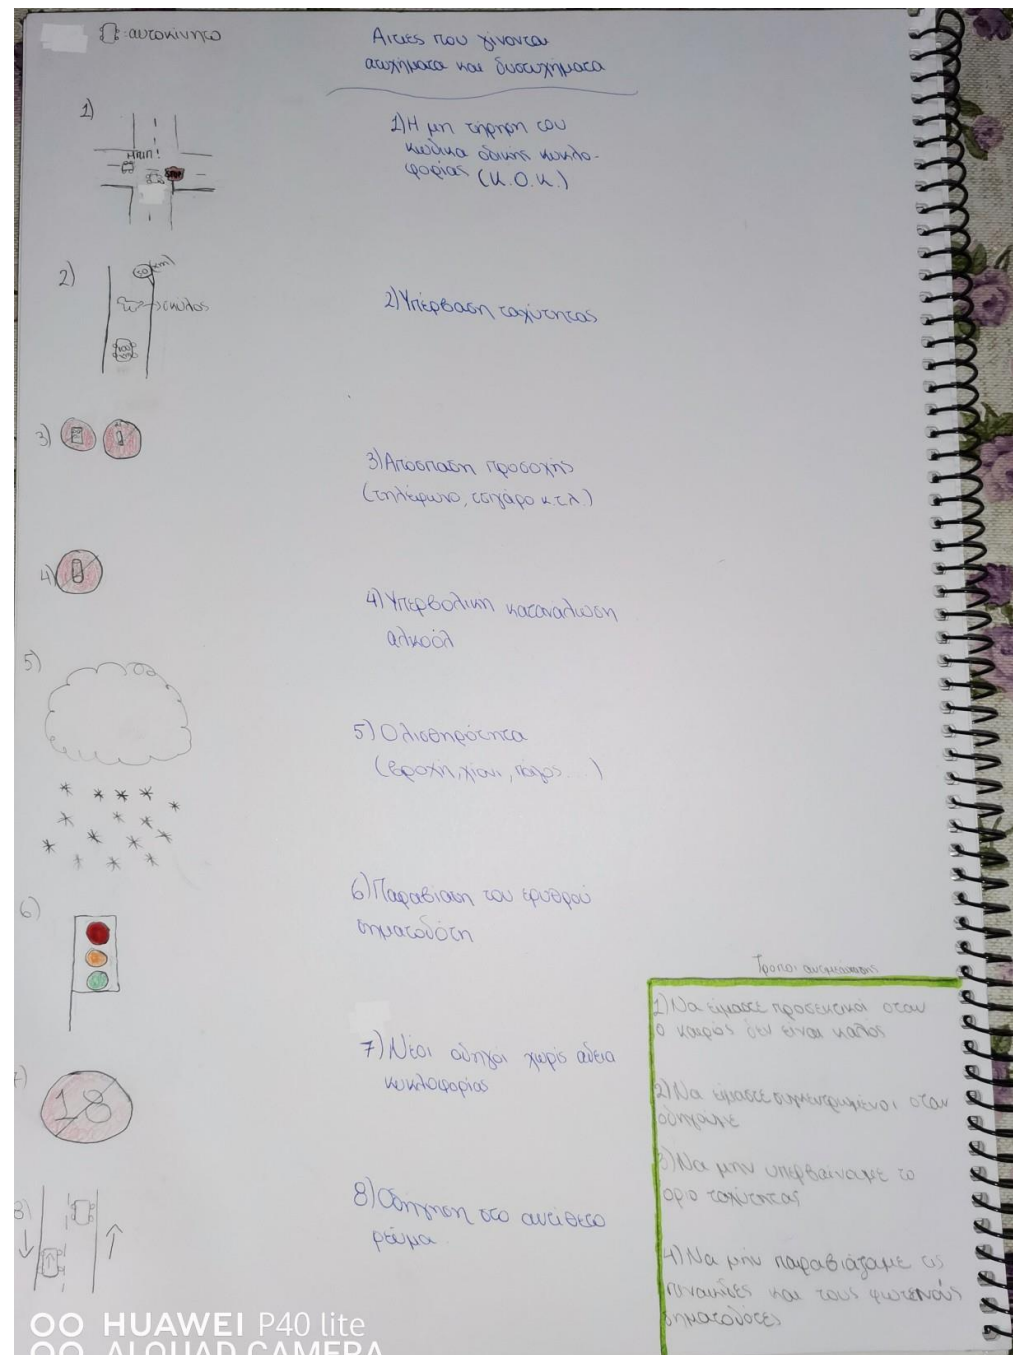 : αυτοκίνητο
Αιτιες που γίνονται
ατυχήματα και δυστυχήματα
1)
ΜΠΙΠ!
STOP
1)Η μη τήρηση του
κώδικα οδικής κυκλο-
φορίας (Κ.Ο.Κ.)
2)
50
km)
σκυλος
2)Υπέρβαση ταχύτητας
3)
3)Αποσπαση προσοχής
(τηλέφωνο, τσιγάρο κ.τ.λ.)
4)
4)Υπερβολικη καταναλωση
αλκοόλ
5)
5)Ολισθηρότητα
(βροχή, χίονι, πάγος....)
6)
6)Παραβιαση του ερυθρού
σηματοδότη
7)
18
7)Νέοι οδηγοί χωρίς αδεια
κυκλοφορίας
8)
8)Οδήγηση στο αντίθετο
ρεύμα
Τροποι αντιμετώπισης
1)Να είμαστε προσεκτικοί οταν
ο καιρός δεν ειναι καλός
2)Να είμαστε συγκεντρωμένοι οταν
οδηγούμε
3)Να μην υπερβαίνουμε το
οριο ταχύτητας
4)Να μήν παραβιάζουμε τις
πινακιδες και τους φωτεινούς
σηματοδότες
HUAWEI P40 lite
AI QUAD CAMERA